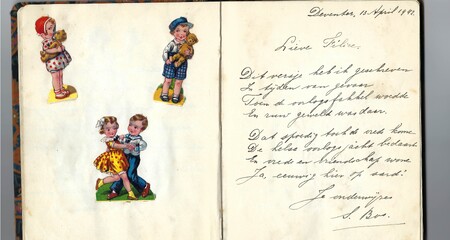 Deventer, 12 April 1941.
Lieve Féline,
Dit versje heb ik geschreven
In tijden van gevaar
Toen de oorlogsfakkel woedde
En ruw geweld was daar.
Dat spoedig toch de vrede kome
De helse oorlogsjacht bedaart
En vrede en vriendschap wone
Ja, eeuwig hier op aard!
Je onderwijzeres
S. Bos.